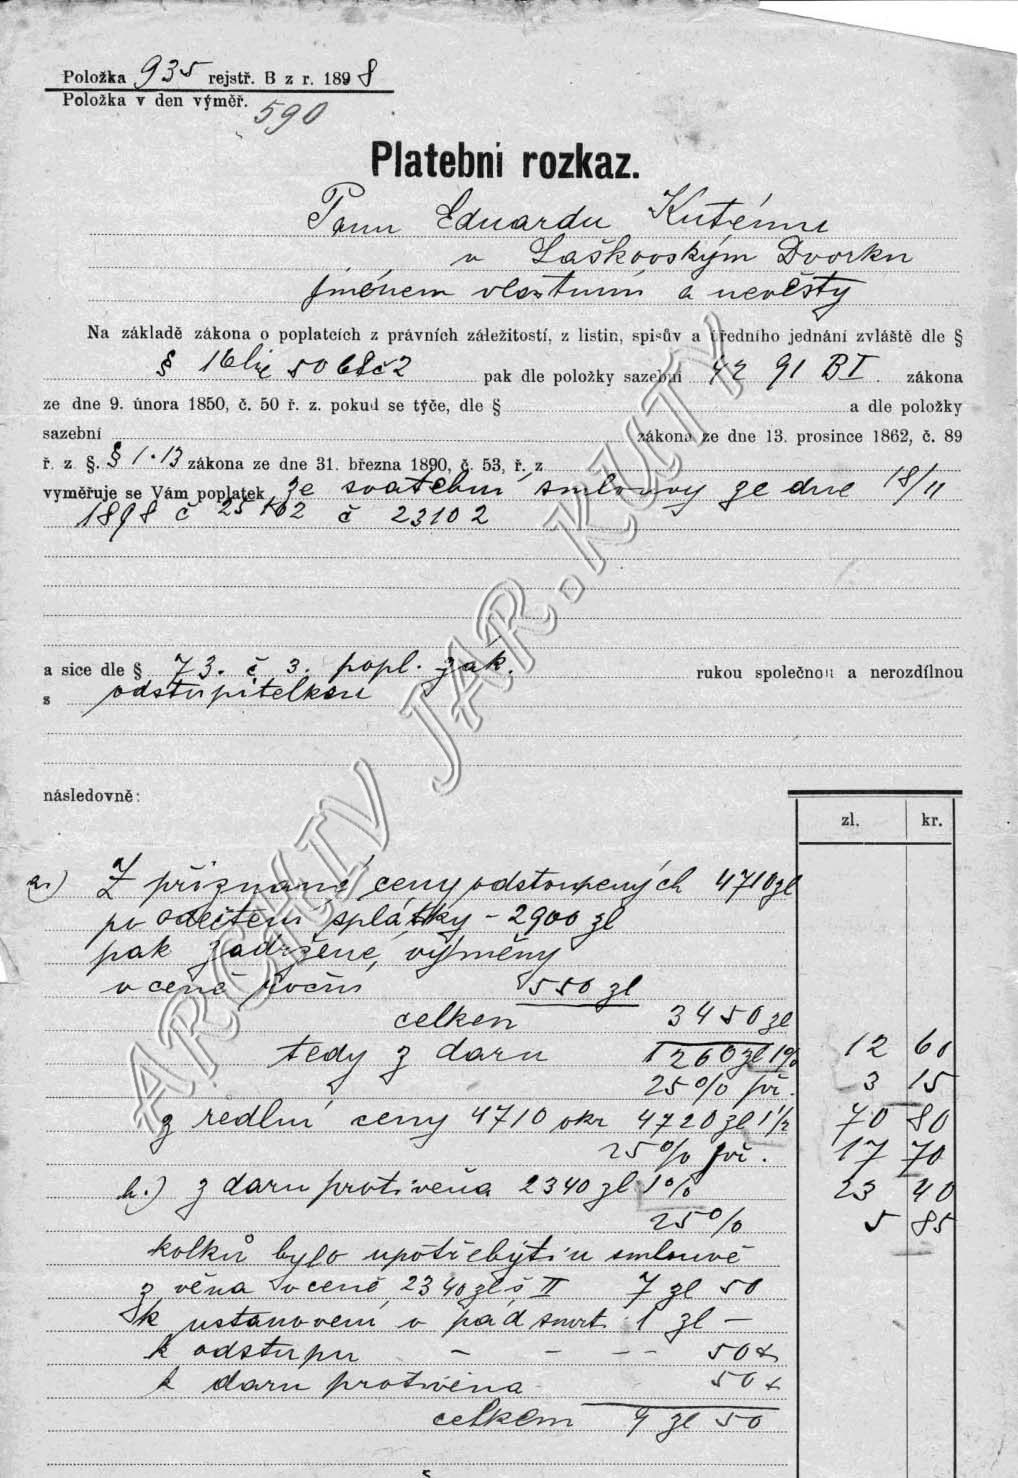 Položka 935 rejstř. B z r. 1898
Položka v den výměř. 590
Platební rozkaz.
Panu Eduardu Kutému
v Laškovským Dvorku
jménem vlastním a nevěsty
Na základě zákona o poplatcích z právních záležitostí, z listin, spisův a úředního jednání zvláště dle §
§ 16 50 č 2 pak dle položky sazební 42 91 B I. zákona
ze dne 9. února 1850, č. 50 ř. z. pokud se týče, dle § a dle položky
sazební zákona ze dne 13. prosince 1862, č. 89
ř. z §. § 1.13 zákona ze dne 31. března 1890, č. 53, ř. z
vyměřuje se Vám poplatek ze svatební smlouvy ze dne 18/11
1898 č 25162 č 23102
a sice dle § 73. č 3. popl. zák. rukou společnou a nerozdílnou
s odstupitelkou
následovně:
zl. kr.
a.) Z přiznané ceny odstoupených 4710 zl
po odečtení splátky - 2900 zl
pak zadržené výměny
v ceně roční 550 zl
celkem 3450 zl
tedy z daru 1260 zl 1% 12 60
25% př. 3 15
z reální ceny 4710 okr 4720 zl 1½ 70 80
25% př. 17 70
b.) z daru protivěna 2340 zl 1% 23 40
25% 5 85
kolků bylo upotřebyti u smlouvě
z věna v ceně 2340 zl š II 7 zl 50
k ustanovení v pád smrti 1 zl -
k odstupu - - -- 50 x
k daru protivěna 50 x
celkem 9 zl 50
ARCHIV JAR. KUTÝ